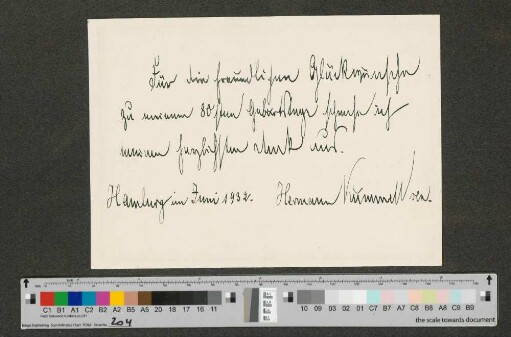 Für die freundlichen Glückwünsche
zu meinem 80sten Geburtstage spreche ich
meinen herzlichsten Dank aus.
Hamburg im Juni 1932. Hermann Kümmell sen.
C1 B1 A1 C2 B2 A2 B5 A5 20 18 17 16 11
10 09 03 02 01 C7 B7 A7 C8 B8 A8 C9 B9
204
the scale towards document